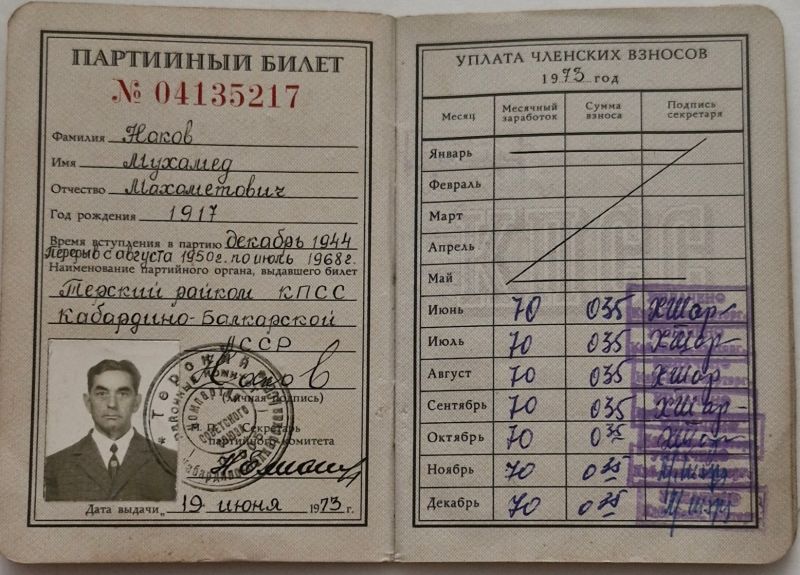 ПАРТИЙНЫЙ БИЛЕТ
№ 04135217
Фамилия Наков
Имя Мухамед
Отчество Махаметович
Год рождения 1917
Время вступления в партию декабрь 1944
Перерыв с августа 1950г. по июль 1968г.
Наименование партийного органа, выдавшего билет
Терский райком КПСС
Кабардино-Балкарской
АССР
(Личная подпись)
Секретарь
партийного комитета
Дата выдачи „19 июня 1973 г.
УПЛАТА ЧЛЕНСКИХ ВЗНОСОВ
1973 год
Месяц Месячный заработок Сумма взноса Подпись секретаря
Январь
Февраль
Март
Апрель
Май
Июнь 70 035
Июль 70 035
Август 70 035
Сентябрь 70 035
Октябрь 70 035
Ноябрь 70 035
Декабрь 70 035